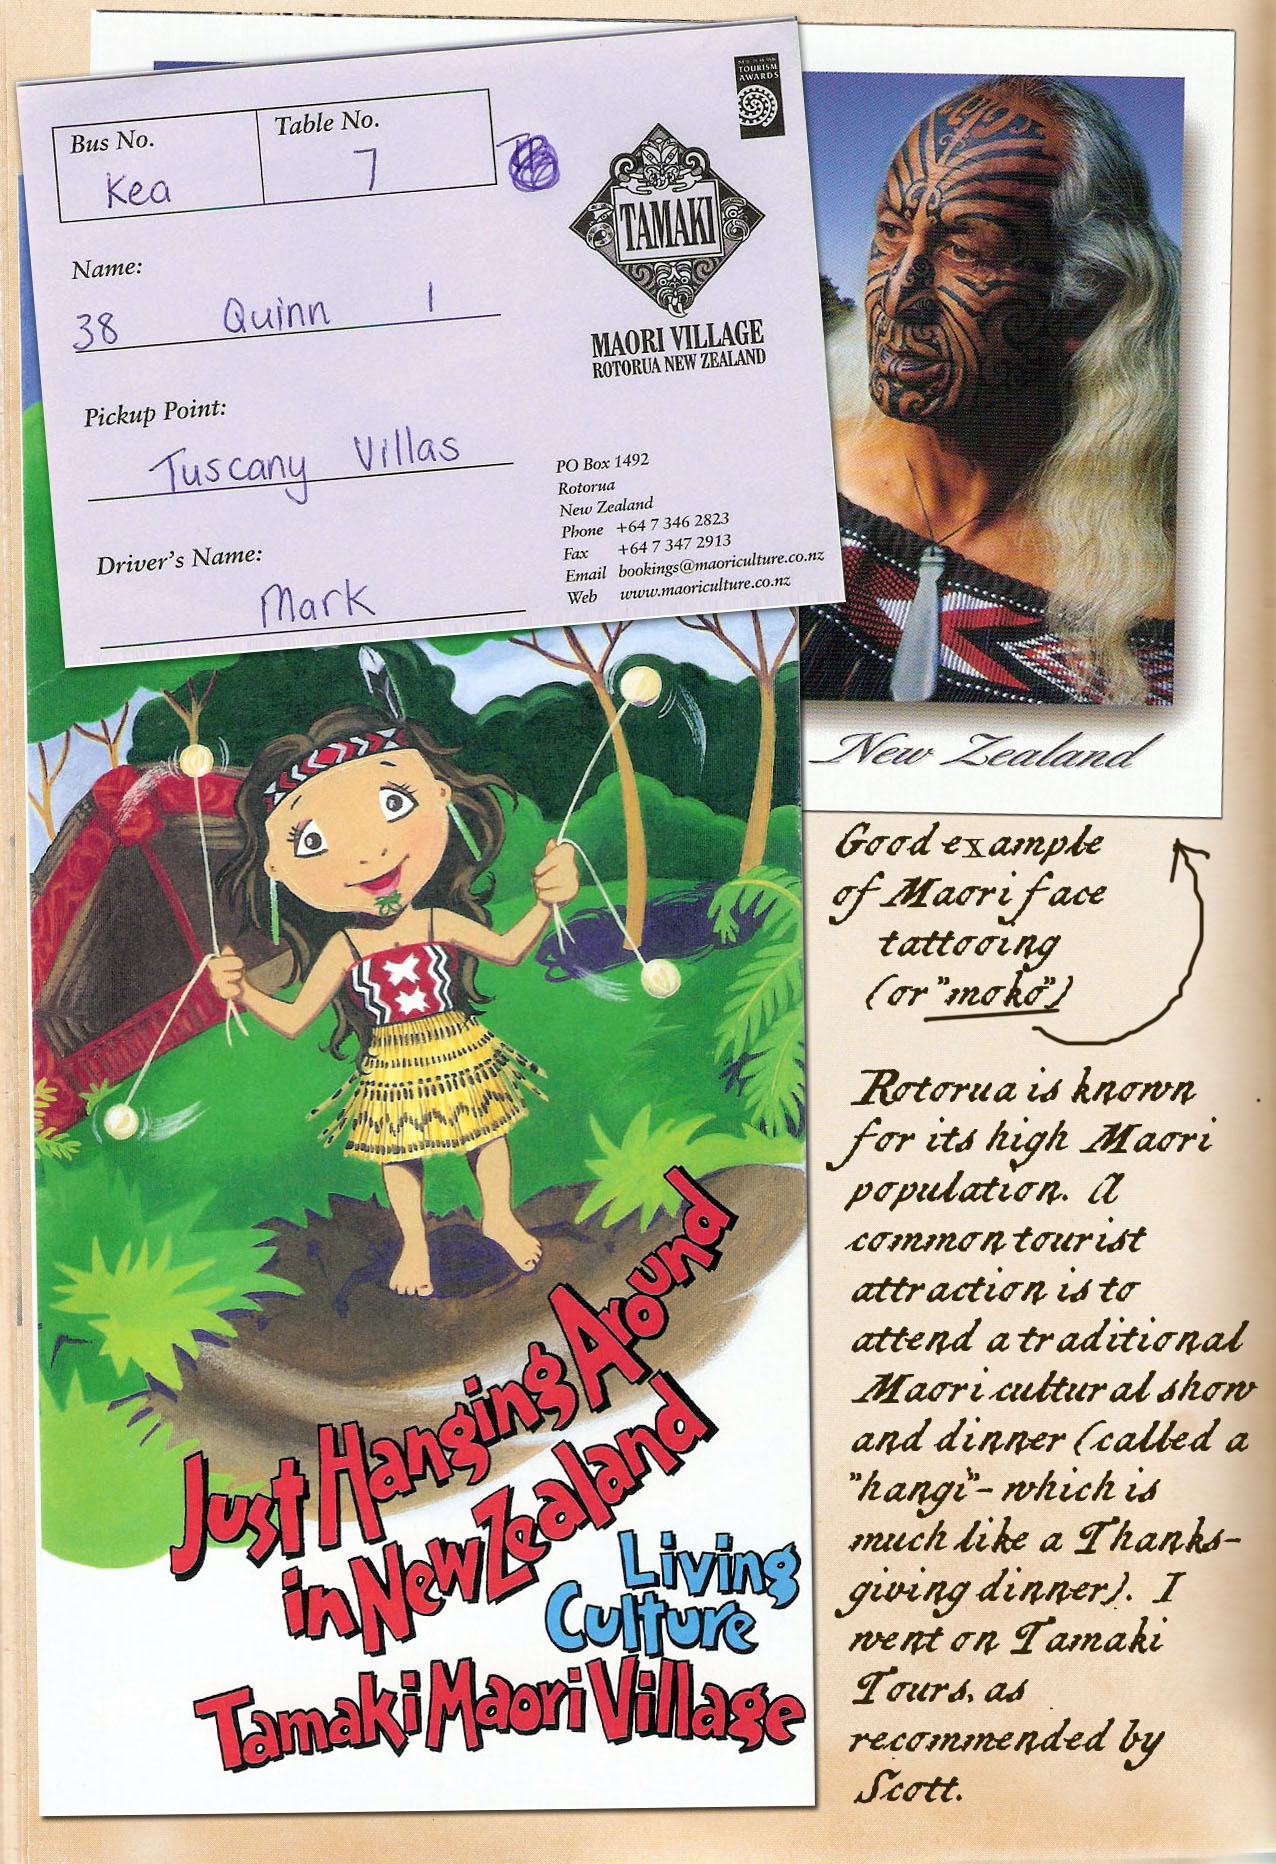 Bus No.
Kea
Table No.
7
Name:
38 Quinn 1
Pickup Point:
Tuscany Villas
Driver's Name:
Mark
TOURISM
AWARDS
TAMAKI
MAORI VILLAGE
ROTORUA NEW ZEALAND
PO Box 1492
Rotorua
New Zealand
Phone +64 7 346 2823
Fax +64 7 347 2913
Email bookings@maoriculture.co.nz
Web www.maoriculture.co.nz
New Zealand
Good example
of Maori face
tattooing
(or "moko")
Rotorua is known
for its high Maori
population. A
common tourist
attraction is to
attend a traditional
Maori cultural show
and dinner (called a
"hangi" - which is
much like a Thanks-
giving dinner). I
went on Tamaki
Tours, as
recommended by
Scott.
Just Hanging Around
in New Zealand
Living
Culture
Tamaki Maori Village